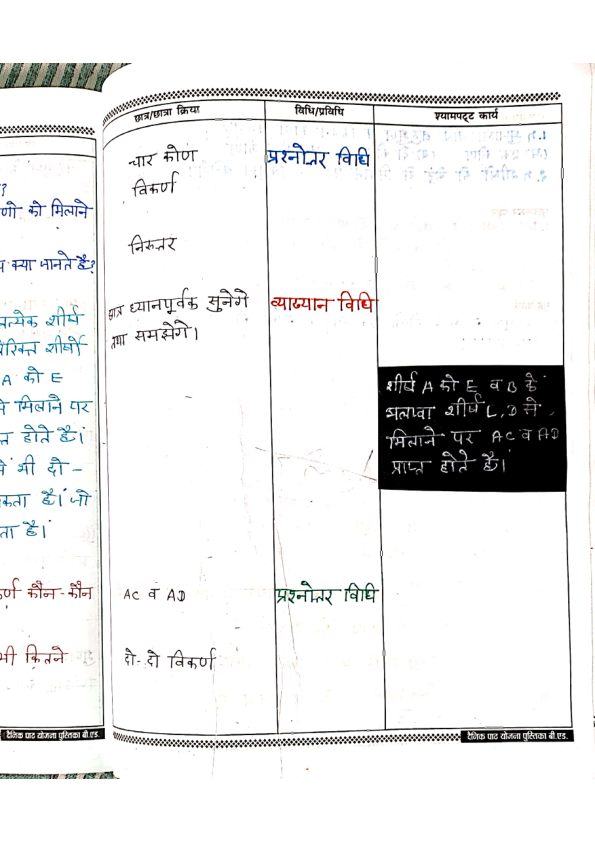 ?
णो को मिलाने
क्या जानते है?
प्रत्येक शीर्ष
रिक्त शीर्षो
A को E
मिलाने पर
होते है।
भी दो -
कता है। जो
ता है।
कौन - कौन
भी कितने
दैनिक पाठ योजना पुस्तिका बी.एड.
छात्र/छात्रा क्रिया विधि/प्रविधि श्यामपट्ट कार्य
चार कोण प्रश्नोत्तर विधि
विकर्ण
निरुत्तर
छात्र ध्यानपूर्वक सुनेगे व्याख्यान विधि
तथा समझेगे।
शीर्ष A को E व B के
अलावा शीर्ष C, D से
मिलाने पर AC व AD
प्राप्त होते है।
AC व AD प्रश्नोत्तर विधि
दो - दो विकर्ण
दैनिक पाठ योजना पुस्तिका बी.एड.